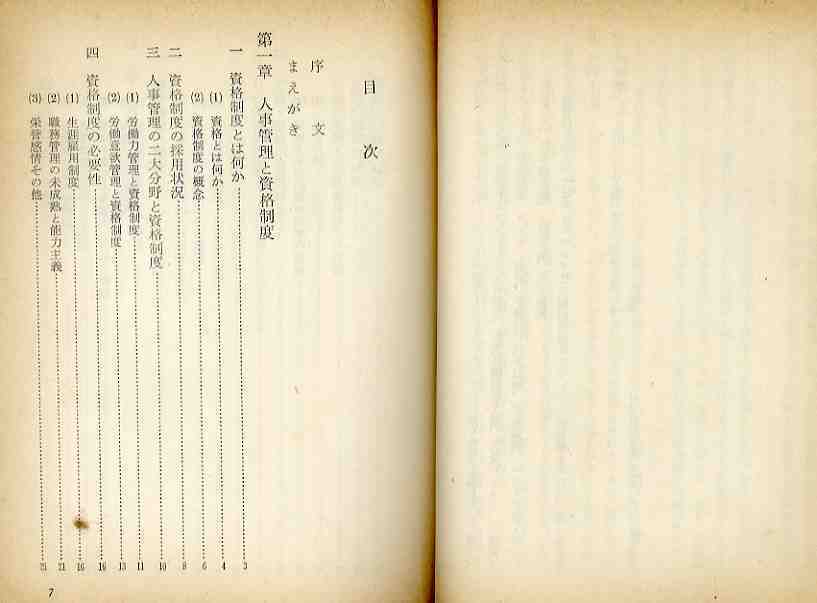 目次
序文
まえがき
第一章 人事管理と資格制度
一 資格制度とは何か……3
(1) 資格とは何か……4
(2) 資格制度の概念……6
二 資格制度の採用状況……8
三 人事管理の二大分野と資格制度……10
(1) 労働力管理と資格制度……11
(2) 労働意欲管理と資格制度……13
四 資格制度の必要性……16
(1) 生涯雇用制度……16
(2) 職務管理の未成熟と能力主義……21
(3) 栄誉感情その他……25
7